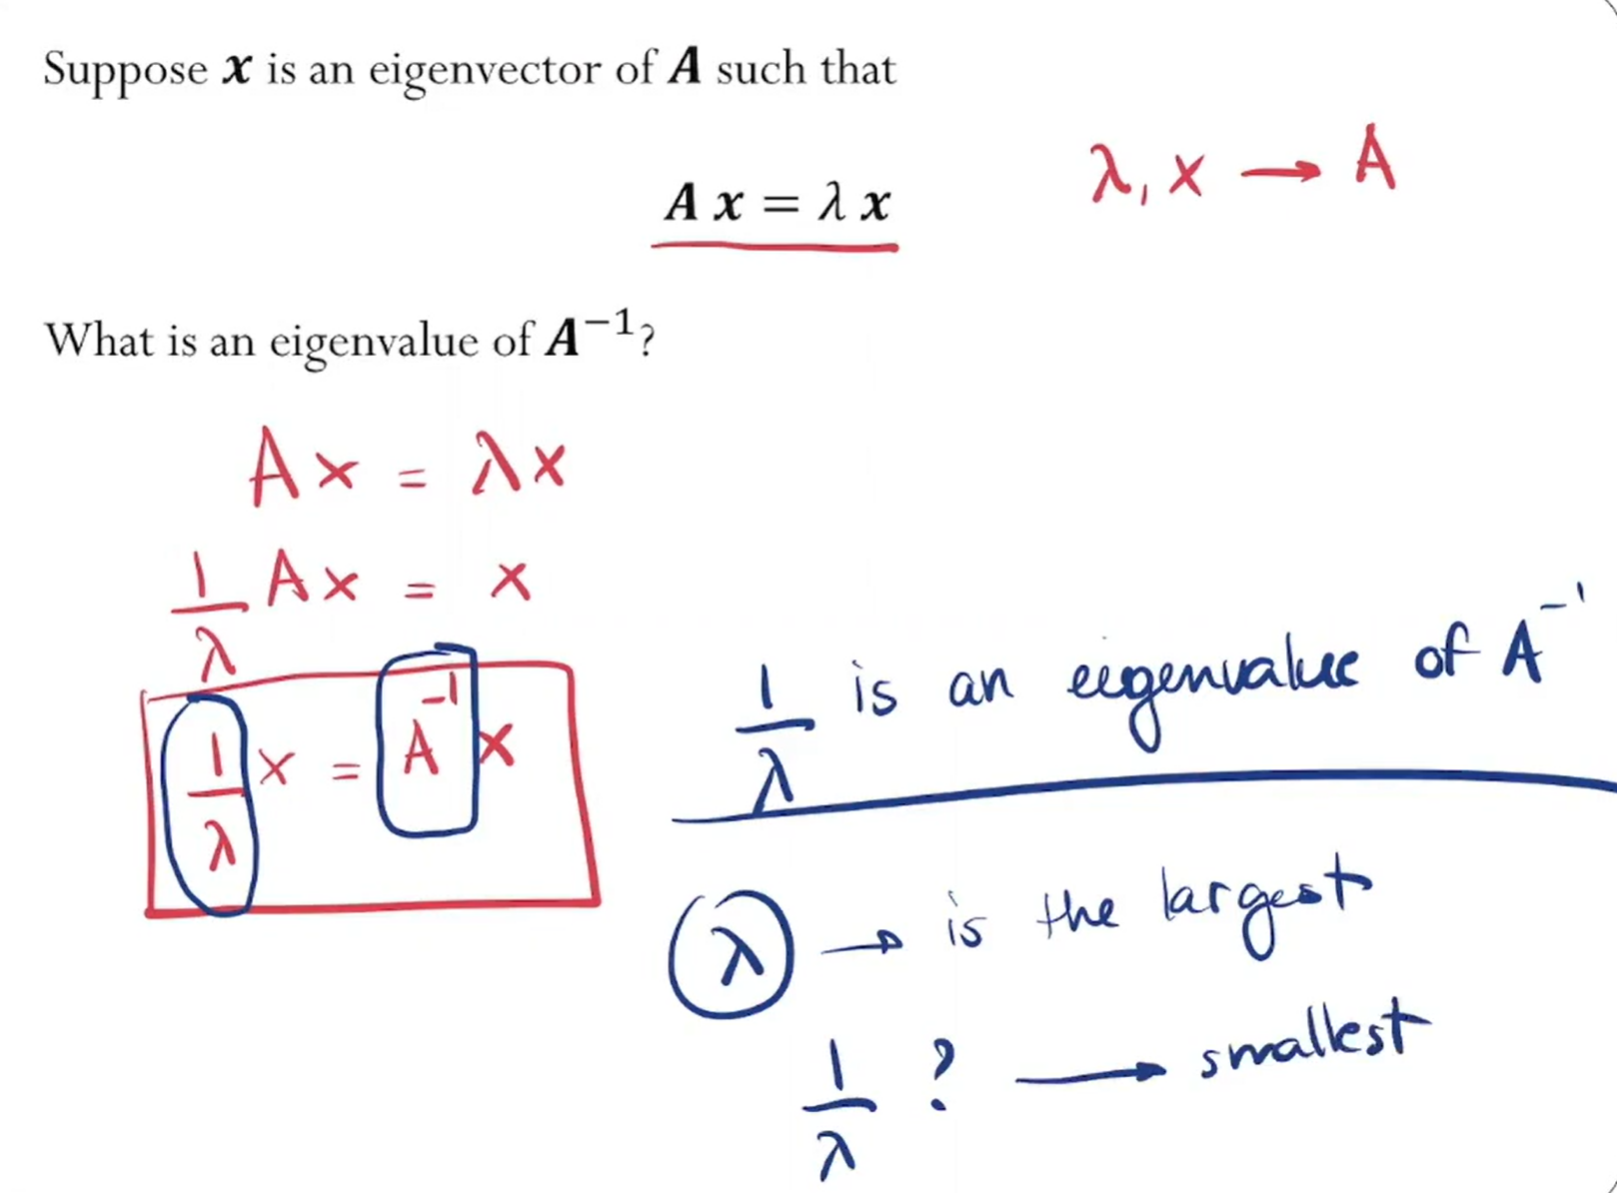 Suppose x is an eigenvector of A such that
A x = λ x
λ, x → A
What is an eigenvalue of A⁻¹?
Ax = λx
1/λ Ax = x
1/λ x = A⁻¹ x
1/λ is an eigenvalue of A⁻¹
λ → is the largest
1/λ ? → smallest